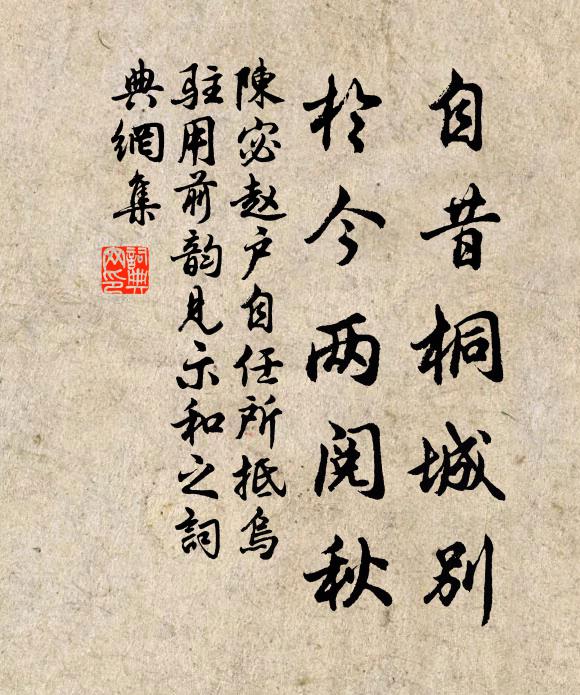 自昔桐城别
於今两阅秋
陳宓赵户自任所抵烏
駐用前韵見示和之詞
典網集
詞典網印